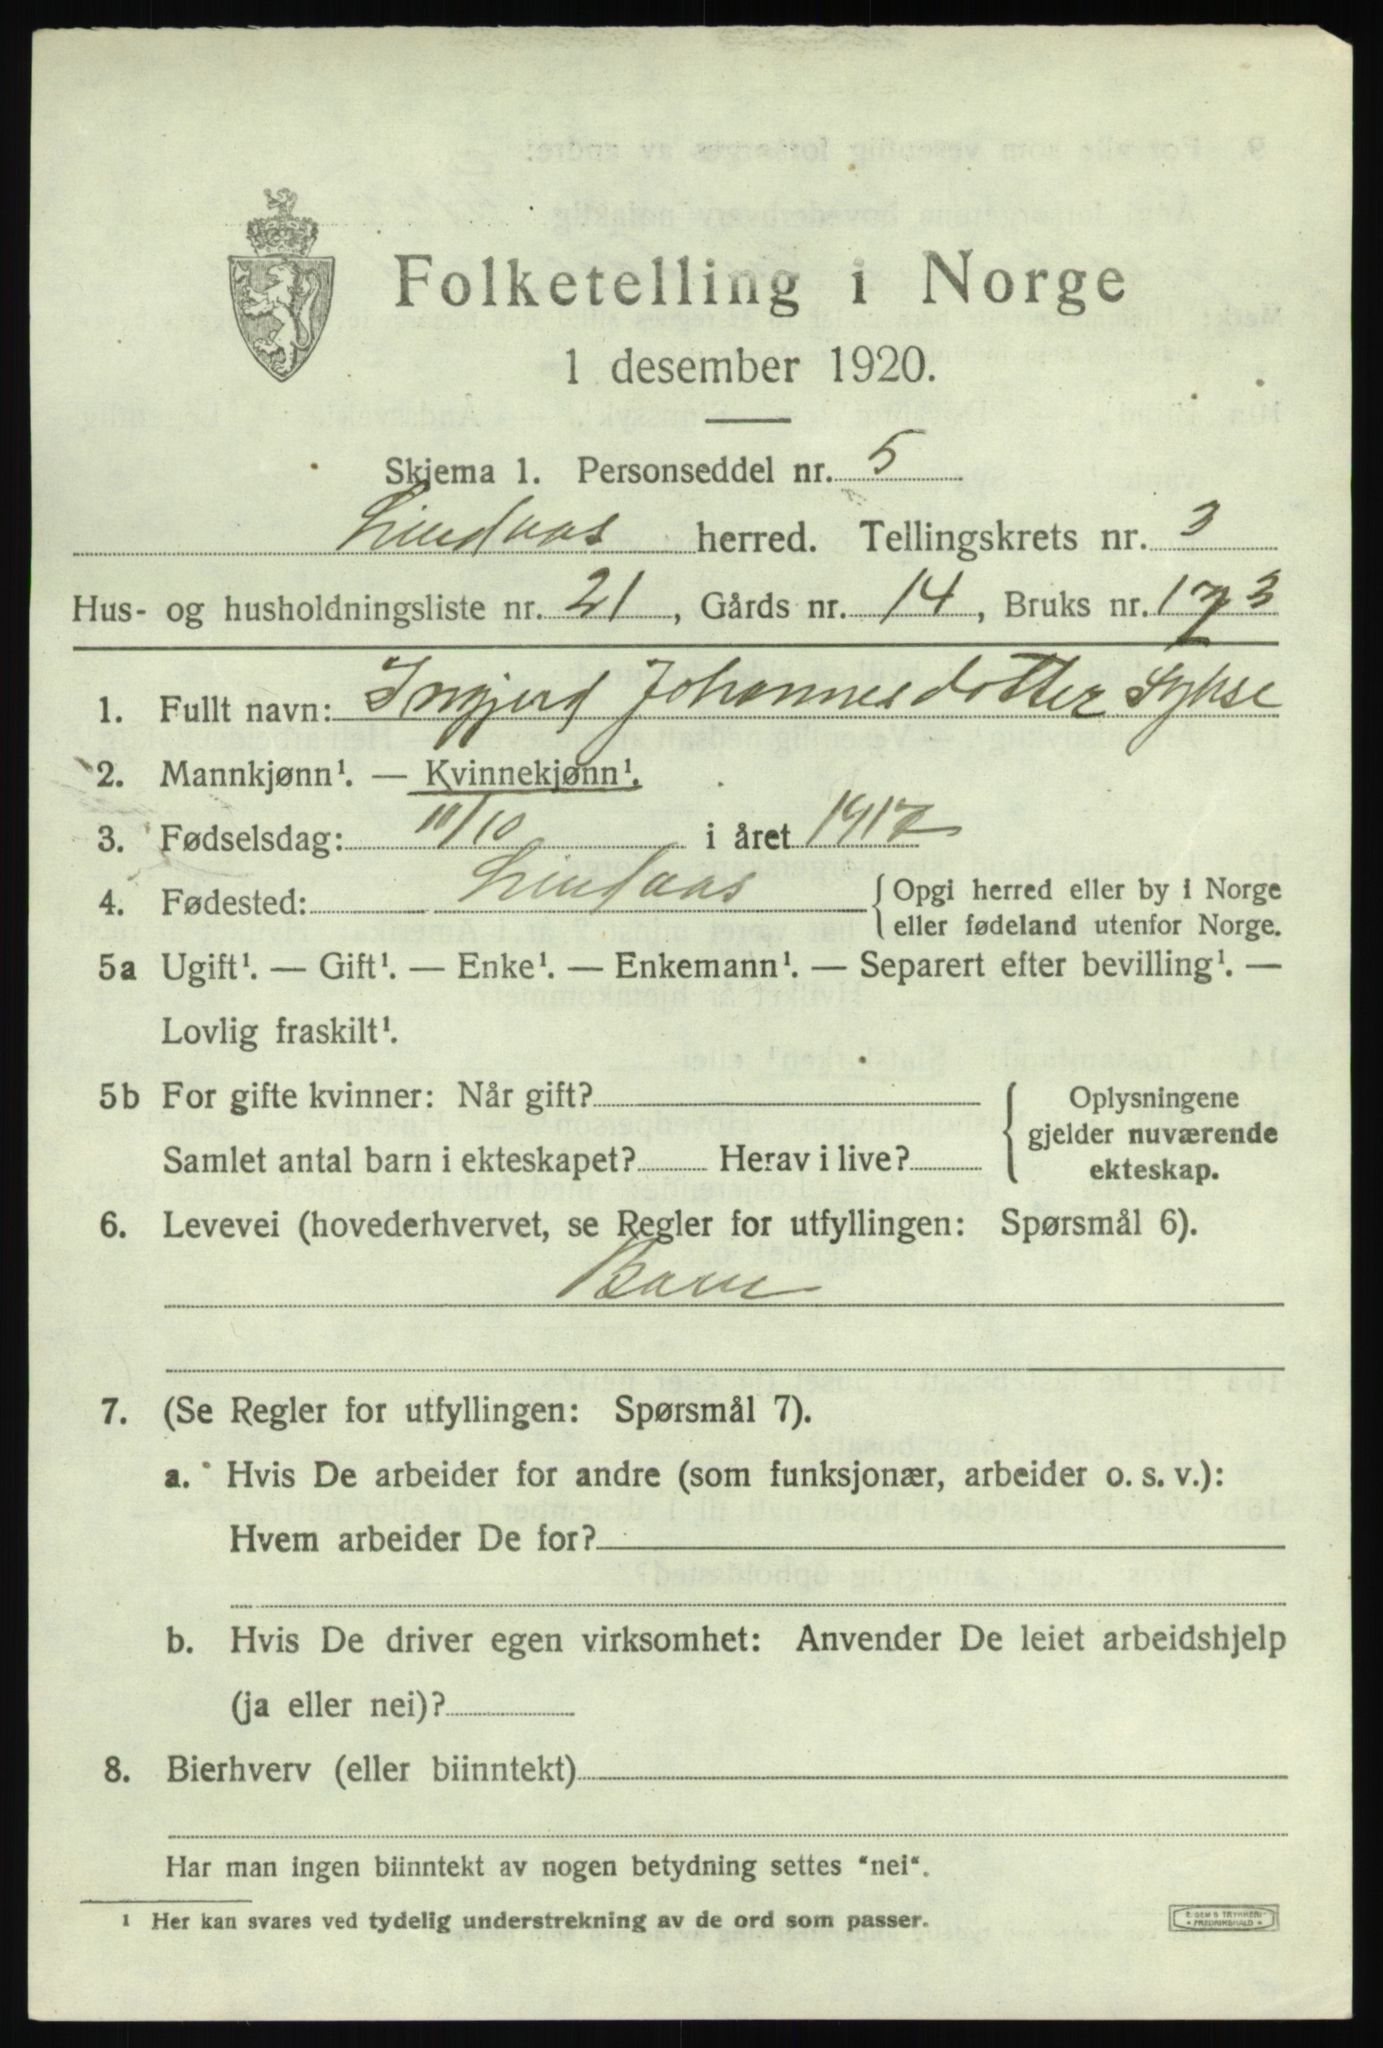 Folketelling i Norge
1 desember 1920.
Skjema 1. Personseddel nr. 5
Lindaas herred. Tellingskrets nr. 3
Hus- og husholdningsliste nr. 21, Gårds nr. 14, Bruks nr. 1 3
1. Fullt navn: Ingjerd Johannesdotter Sykse
2. Mannkjønn¹. — Kvinnekjønn¹.
3. Fødselsdag: 11/10 i året 1917
4. Fødested: Lindaas { Opgi herred eller by i Norge
eller fødeland utenfor Norge.
5a Ugift¹. — Gift¹. — Enke¹. — Enkemann¹. — Separert efter bevilling¹. —
Lovlig fraskilt¹.
5b For gifte kvinner: Når gift?
Samlet antal barn i ekteskapet? Herav i live?
Oplysningene
gjelder nuværende
ekteskap.
6. Levevei (hovederhvervet, se Regler for utfyllingen: Spørsmål 6).
Barn
7. (Se Regler for utfyllingen: Spørsmål 7).
a. Hvis De arbeider for andre (som funksjonær, arbeider o. s. v.):
Hvem arbeider De for?
b. Hvis De driver egen virksomhet: Anvender De leiet arbeidshjelp
(ja eller nei)?
8. Bierhverv (eller biinntekt)
Har man ingen biinntekt av nogen betydning settes "nei".
¹ Her kan svares ved tydelig understrekning av de ord som passer.